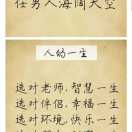 任男人海阔天空
人的一生
选对老师,智慧一生
选对伴侣,幸福一生
选对环境,快乐一生